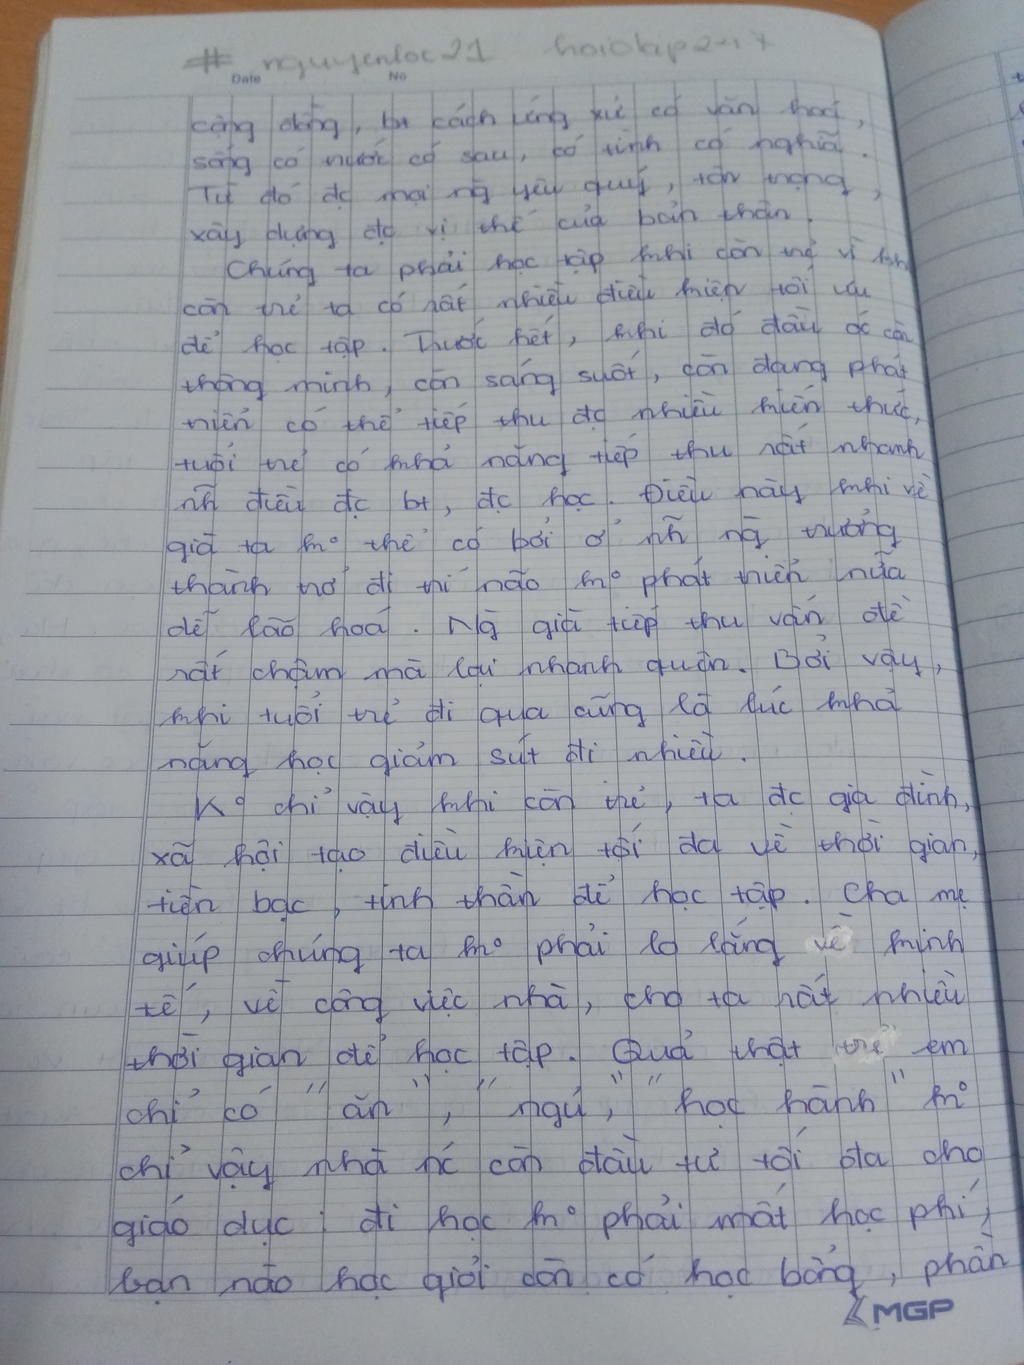 # nguyenloc21 hoidap247
Date No
cộng đồng, bt cách ứng xử có văn hoá,
sống có trước có sau, có tình có nghĩa.
Từ đó đc mọi ng yêu quý, tôn trọng,
xây dựng đc vị thế của bản thân.
Chúng ta phải học tập khi còn trẻ vì khi
còn trẻ ta có rất nhiều điều kiện tối ưu
để học tập. Trước hết, khi đó đầu óc còn
thông minh, còn sáng suốt, còn đang phát
triển có thể tiếp thu đc nhiều kiến thức,
tuổi trẻ có khả năng tiếp thu rất nhanh
nh~ điều đc bt, đc học. Điều này khi về
già ta ko thể có bởi ở nh~ ng trưởng
thành trở đi thì não ko phát triển nữa
dễ lão hoá. Ng già tiếp thu vấn đề
rất chậm mà lại nhanh quên. Bởi vậy,
khi tuổi trẻ đi qua cũng là lúc khả
năng học giảm sút đi nhiều.
Ko chỉ vậy khi còn trẻ, ta đc gia đình,
xã hội tạo điều kiện tối đa về thời gian,
tiền bạc, tinh thần để học tập. Cha mẹ
giúp chúng ta ko phải lo lắng về kinh
tế, về công việc nhà, cho ta rất nhiều
thời gian để học tập. Quả thật trẻ em
chỉ có "ăn", "ngủ," "học hành" ko
chỉ vậy nhà nc còn đầu tư tối đa cho
giáo dục: đi học ko phải mất học phí,
bạn nào học giỏi còn có học bổng, phần
MGP